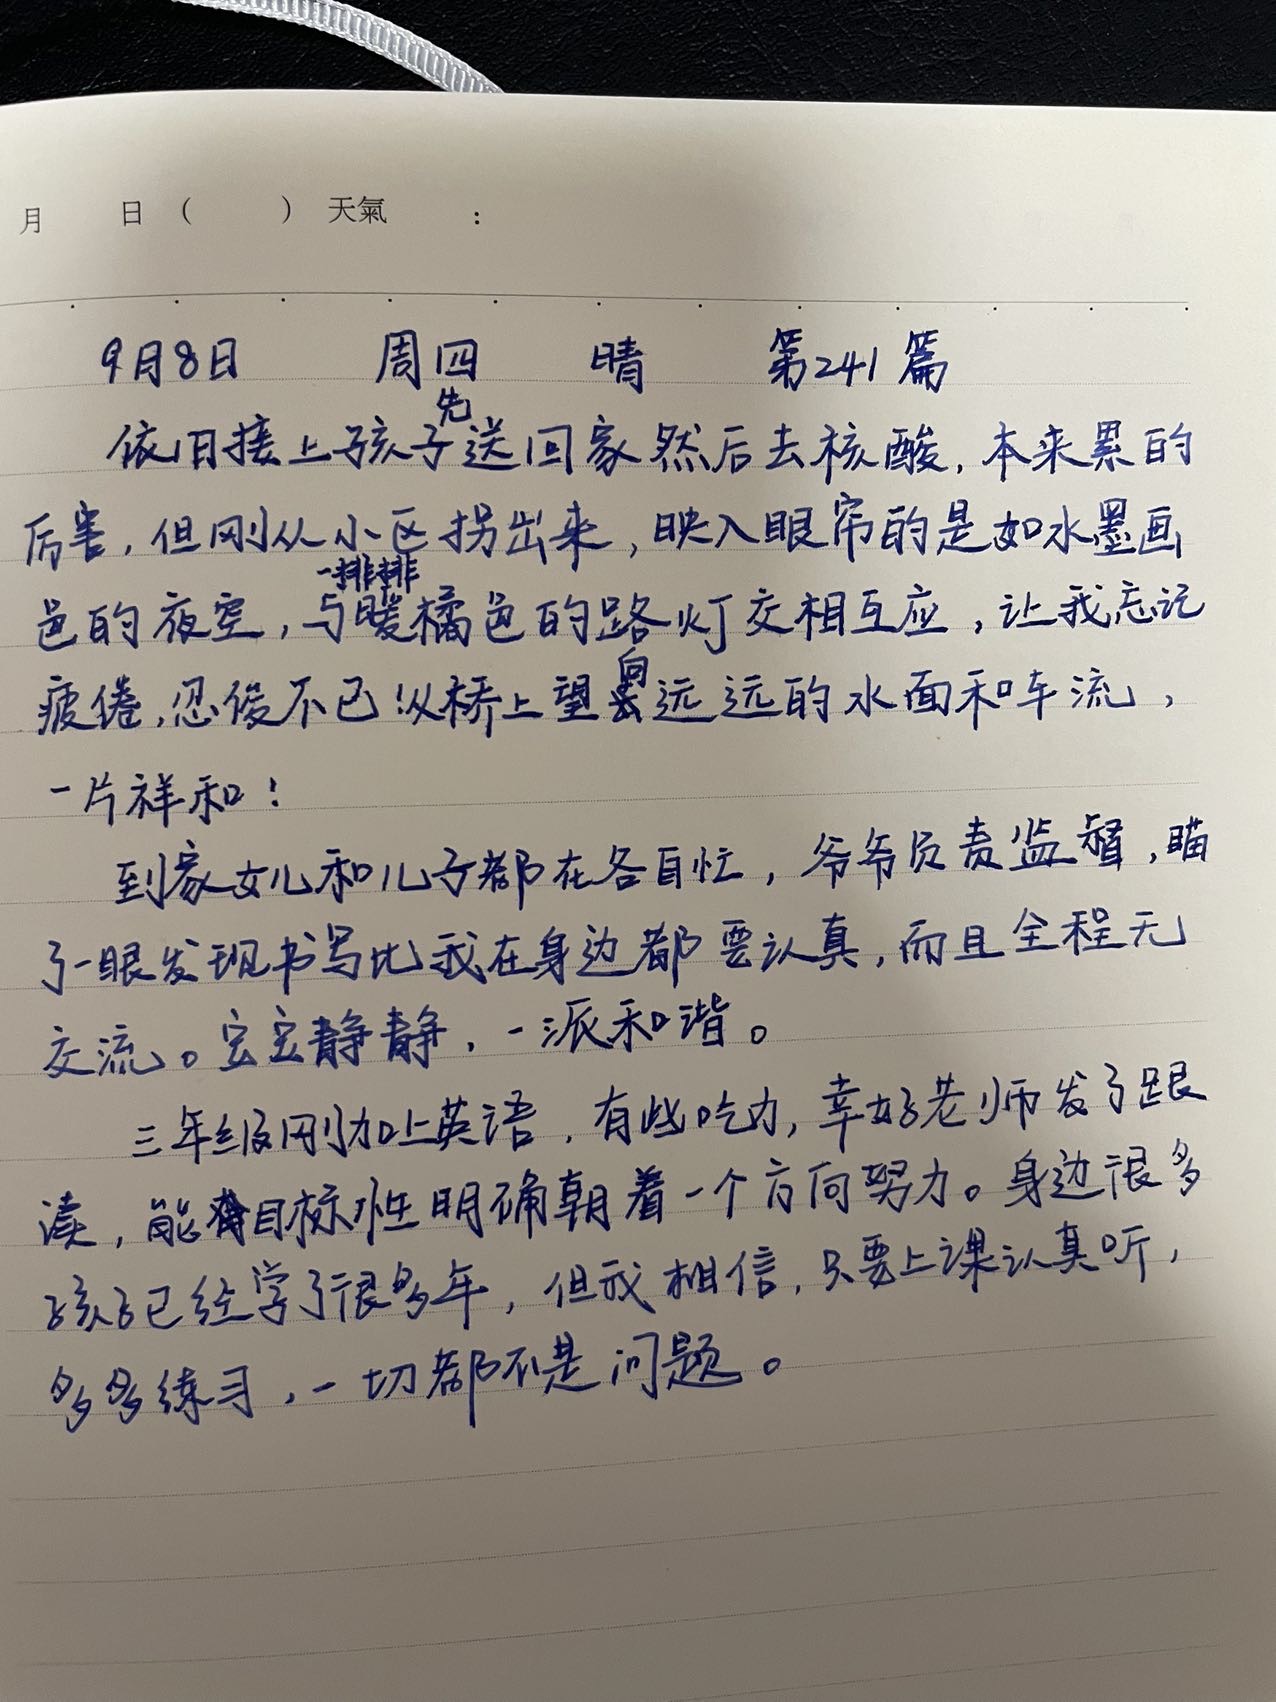 月 日 ( ) 天氣 :
9月8日 周四 晴 第241篇
依旧接上孩子先送回家然后去核酸,本来累的
厉害,但刚从小区拐出来,映入眼帘的是如水墨画
色的夜空,与一排排暖橘色的路灯交相互应,让我忘记
疲倦,忍俊不已!从桥上望向远远的水面和车流,
一片祥和!
到家女儿和儿子都在各自忙,爷爷负责监督,瞄
了一眼发现书写比我在身边都要认真,而且全程无
交流。安安静静,一派和谐。
三年级刚加上英语,有些吃力,幸好老师发了跟
读,能目标性明确朝着一个方向努力。身边很多
孩子已经学了很多年,但我相信,只要上课认真听,
多多练习,一切都不是问题。